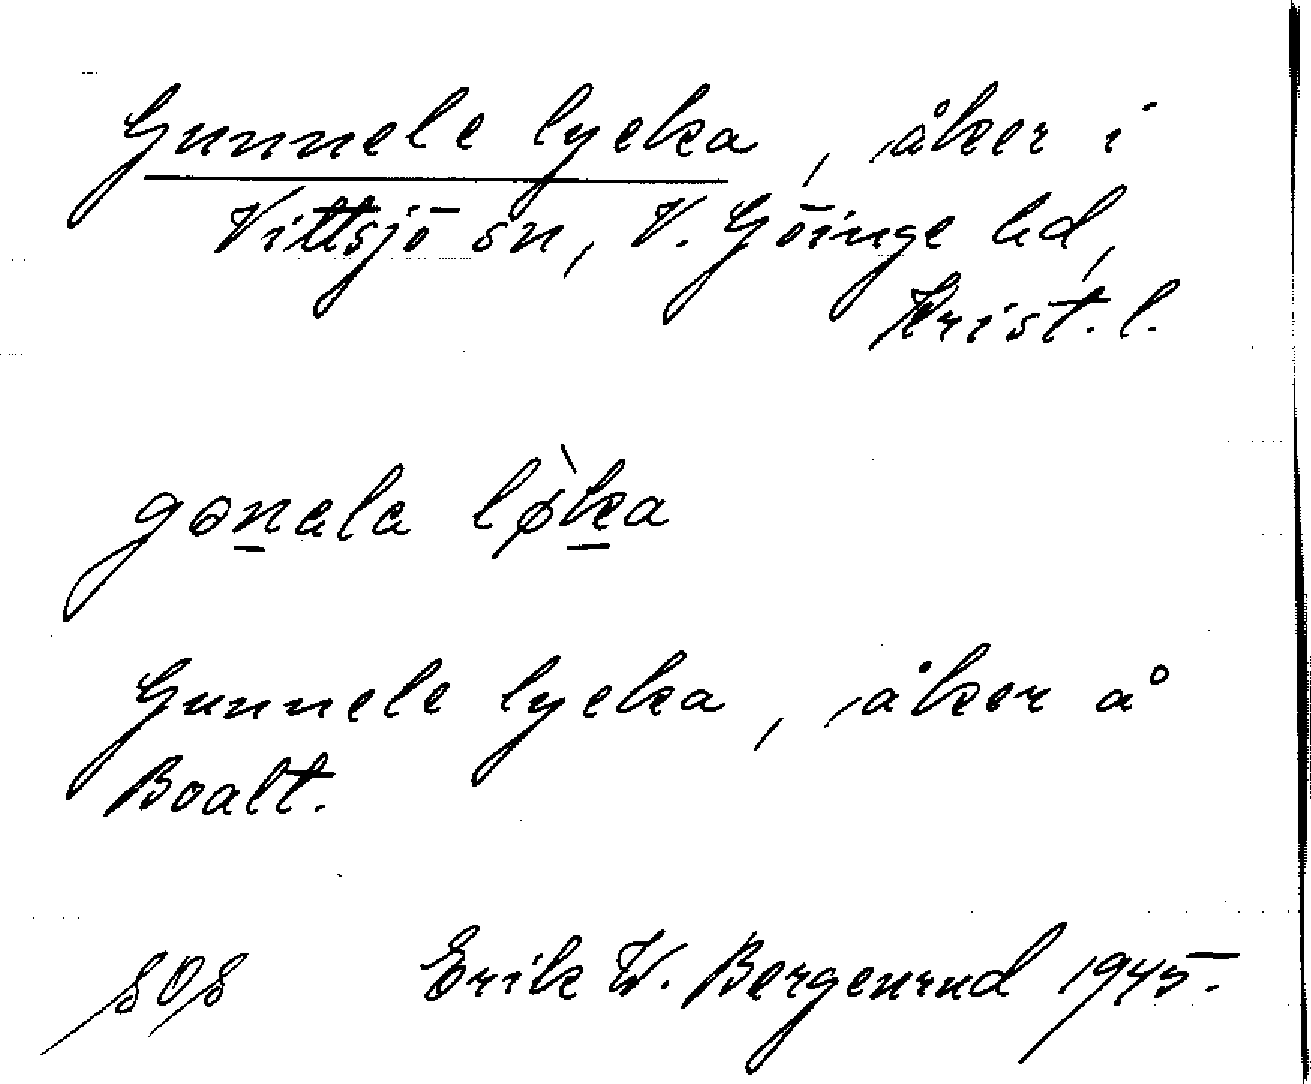 Gunnele lycka, åker i
Vittsjö sn, V. Göinge hd,
Krist. l.
gɵnala lø̀ka
Gunnele lycka, åker å
Boalt.
SOS Erik W. Bergenrud 1945.